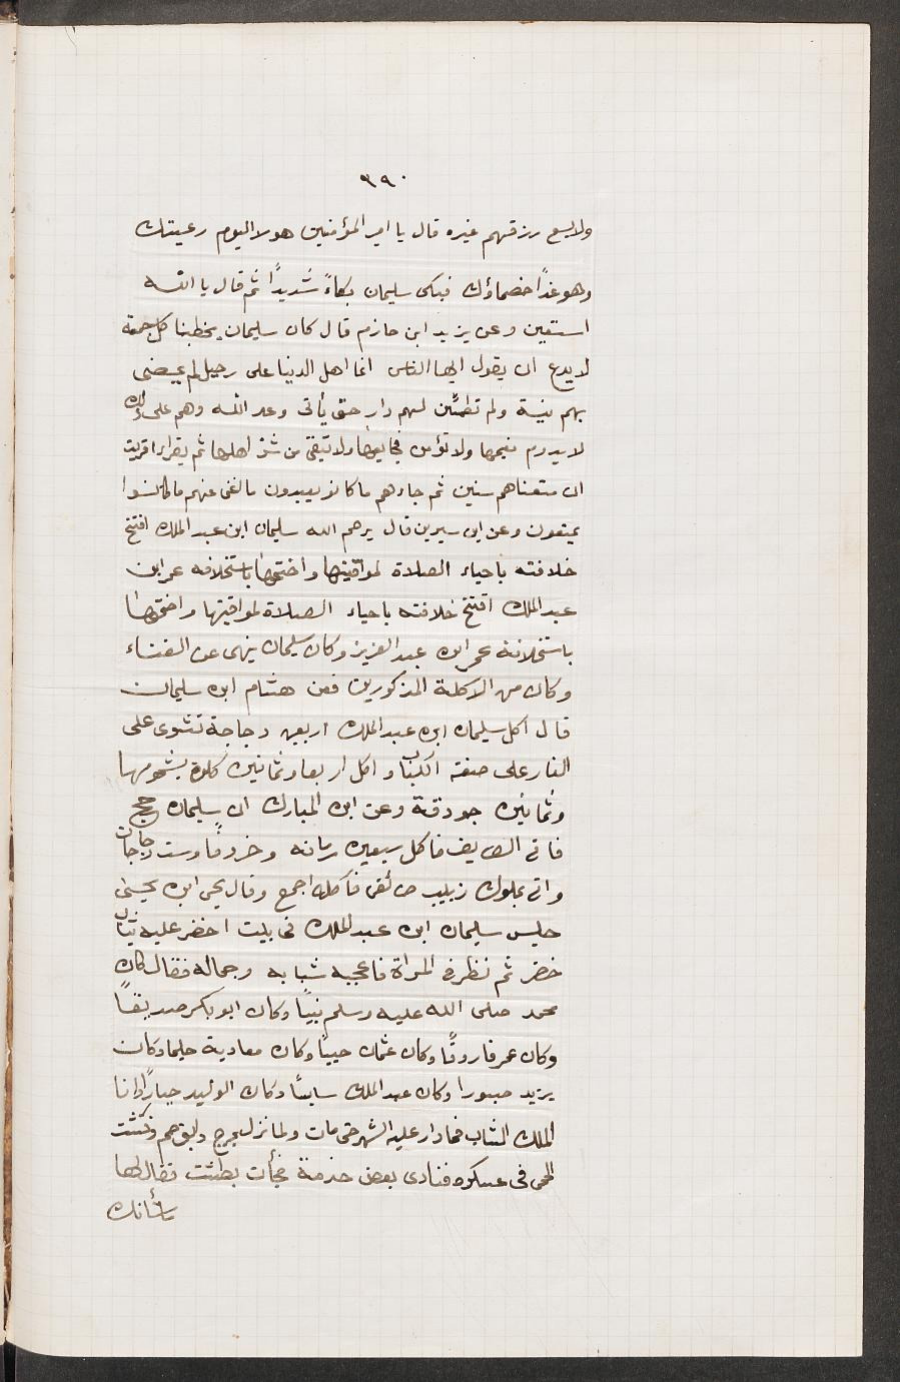 ٣٩٠
ولا يسع رزقهم غيره قال يا امير المؤمنين هولا اليوم رعيتك
وهو غدًا خصماؤك فبكى سليمان بكاءً شديدًا ثم قال يا الله
استعين وعن يزيد ابن حازم قال كان سليمان يخطبنا كل جمعة
لا يدع ان يقول ايها الناس انما اهل الدنيا على رحيل لم يمضى
بهم نية ولم تطمئن لهم دار حتى يأتى وعد الله وهم على ذلك
لا يدوم نعيمها ولا تؤمن فجايعها ولا تبقى من شر اهلها ثم يقراء افريت
ان متعناهم سنين ثم جاءهم ما كانو يعبدون ما لغى عنهم ما كانوا
يمتعون وعن ابن سيرين قال يرحم الله سليمان ابن عبد الملك افتتح
خلافته باحياء الصلاة لمواقيتها واختمها باستخلافه عمر ابن
عبد الملك افتتح خلافته باحياء الصلاة لمواقيتها واختمها
باستخلافة عمر ابن عبد العزيز وكان سليمان ينهى عن الغناء
وكان من الاكلة المذكورين فعن هشام ابن سليمان
قال اكل سليمان ابن عبد الملك اربعين دجاجة تشوى على
النار على صفة الكباب واكل اربعا وثمانين كلوة بشحومها
وثمانين جودقة وعن ابن المبارك ان سليمان حج
فاتى الصايف فاكل سبعين رمانه وخروفًا وست دجاجات
واتى بملوك زبيب صائفى فأكله اجمع وقال يحى ابن يحيى
جلس سليمان ابن عبد الملك فى بيت اخضر عليه ثياب
خضر ثم نظر فى المراة فاعجبه شبابه وجماله فقال كان
محمد صلى الله عليه وسلم نبيًا وكان ابو بكر صديقًا
وكان عمر فاروقًا وكان عثمان حييًا وكان معادية حليما وكان
يزيد صبورا وكان عبد الملك سايسًا وكان الوليد جبارًا وانا
الملك الشاب فما دار عليه الشهر حتى مات ولما نزل بمرج دابق حم وفشت
الحمى فى عسكره فنادى بعض خدمة فجأت بطشت فقال لها
ما شأنك